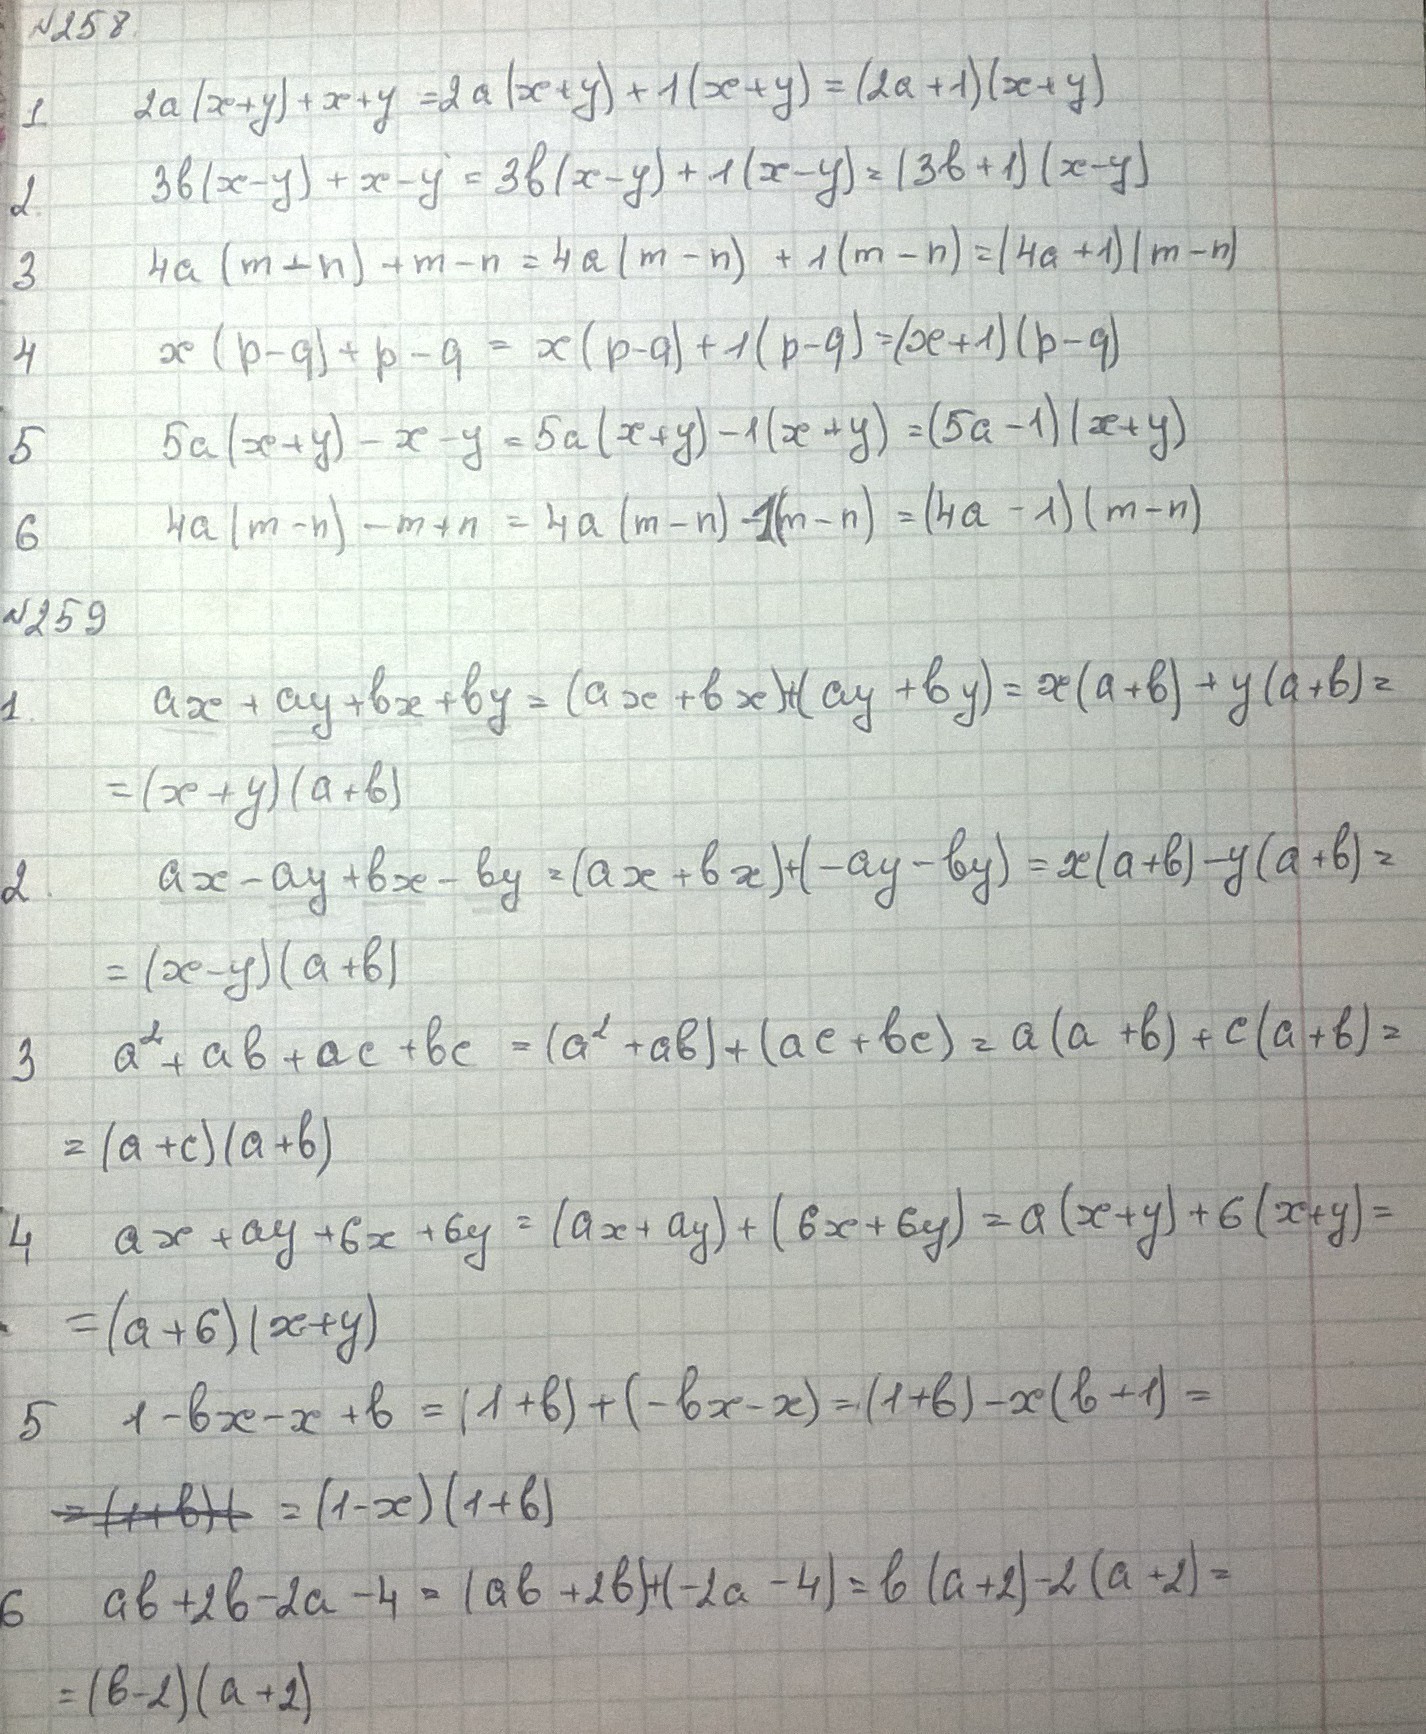 №258
1 2a(x+y)+x+y=2a(x+y)+1(x+y)=(2a+1)(x+y)
2. 3в(x-y)+x-y=3в(x-y)+1(x-y)=(3в+1)(x-y)
3 4a(m-n)+m-n=4a(m-n)+1(m-n)=(4a+1)(m-n)
4 x(p-q)+p-q=x(p-q)+1(p-q)=(x+1)(p-q)
5 5a(x+y)-x-y=5a(x+y)-1(x+y)=(5a-1)(x+y)
6 4a(m-n)-m+n=4a(m-n)-1(m-n)=(4a-1)(m-n)
№259
1. ax+ay+вx+вy=(ax+вx)+(ay+вy)=x(a+в)+y(a+в)=
=(x+y)(a+в)
2. ax-ay+вx-вy=(ax+вx)+(-ay-вy)=x(a+в)-y(a+в)=
=(x-y)(a+в)
3 a²+aв+ac+вc=(a²+aв)+(ac+вc)=a(a+в)+c(a+в)=
=(a+c)(a+в)
4 ax+ay+6x+6y=(ax+ay)+(6x+6y)=a(x+y)+6(x+y)=
=(a+6)(x+y)
5 1-вx-x+в=(1+в)+(-вx-x)=(1+в)-x(в+1)=
=(1+в)( =(1-x)(1+в)
6 aв+2в-2a-4=(aв+2в)+(-2a-4)=в(a+2)-2(a+2)=
=(в-2)(a+2)